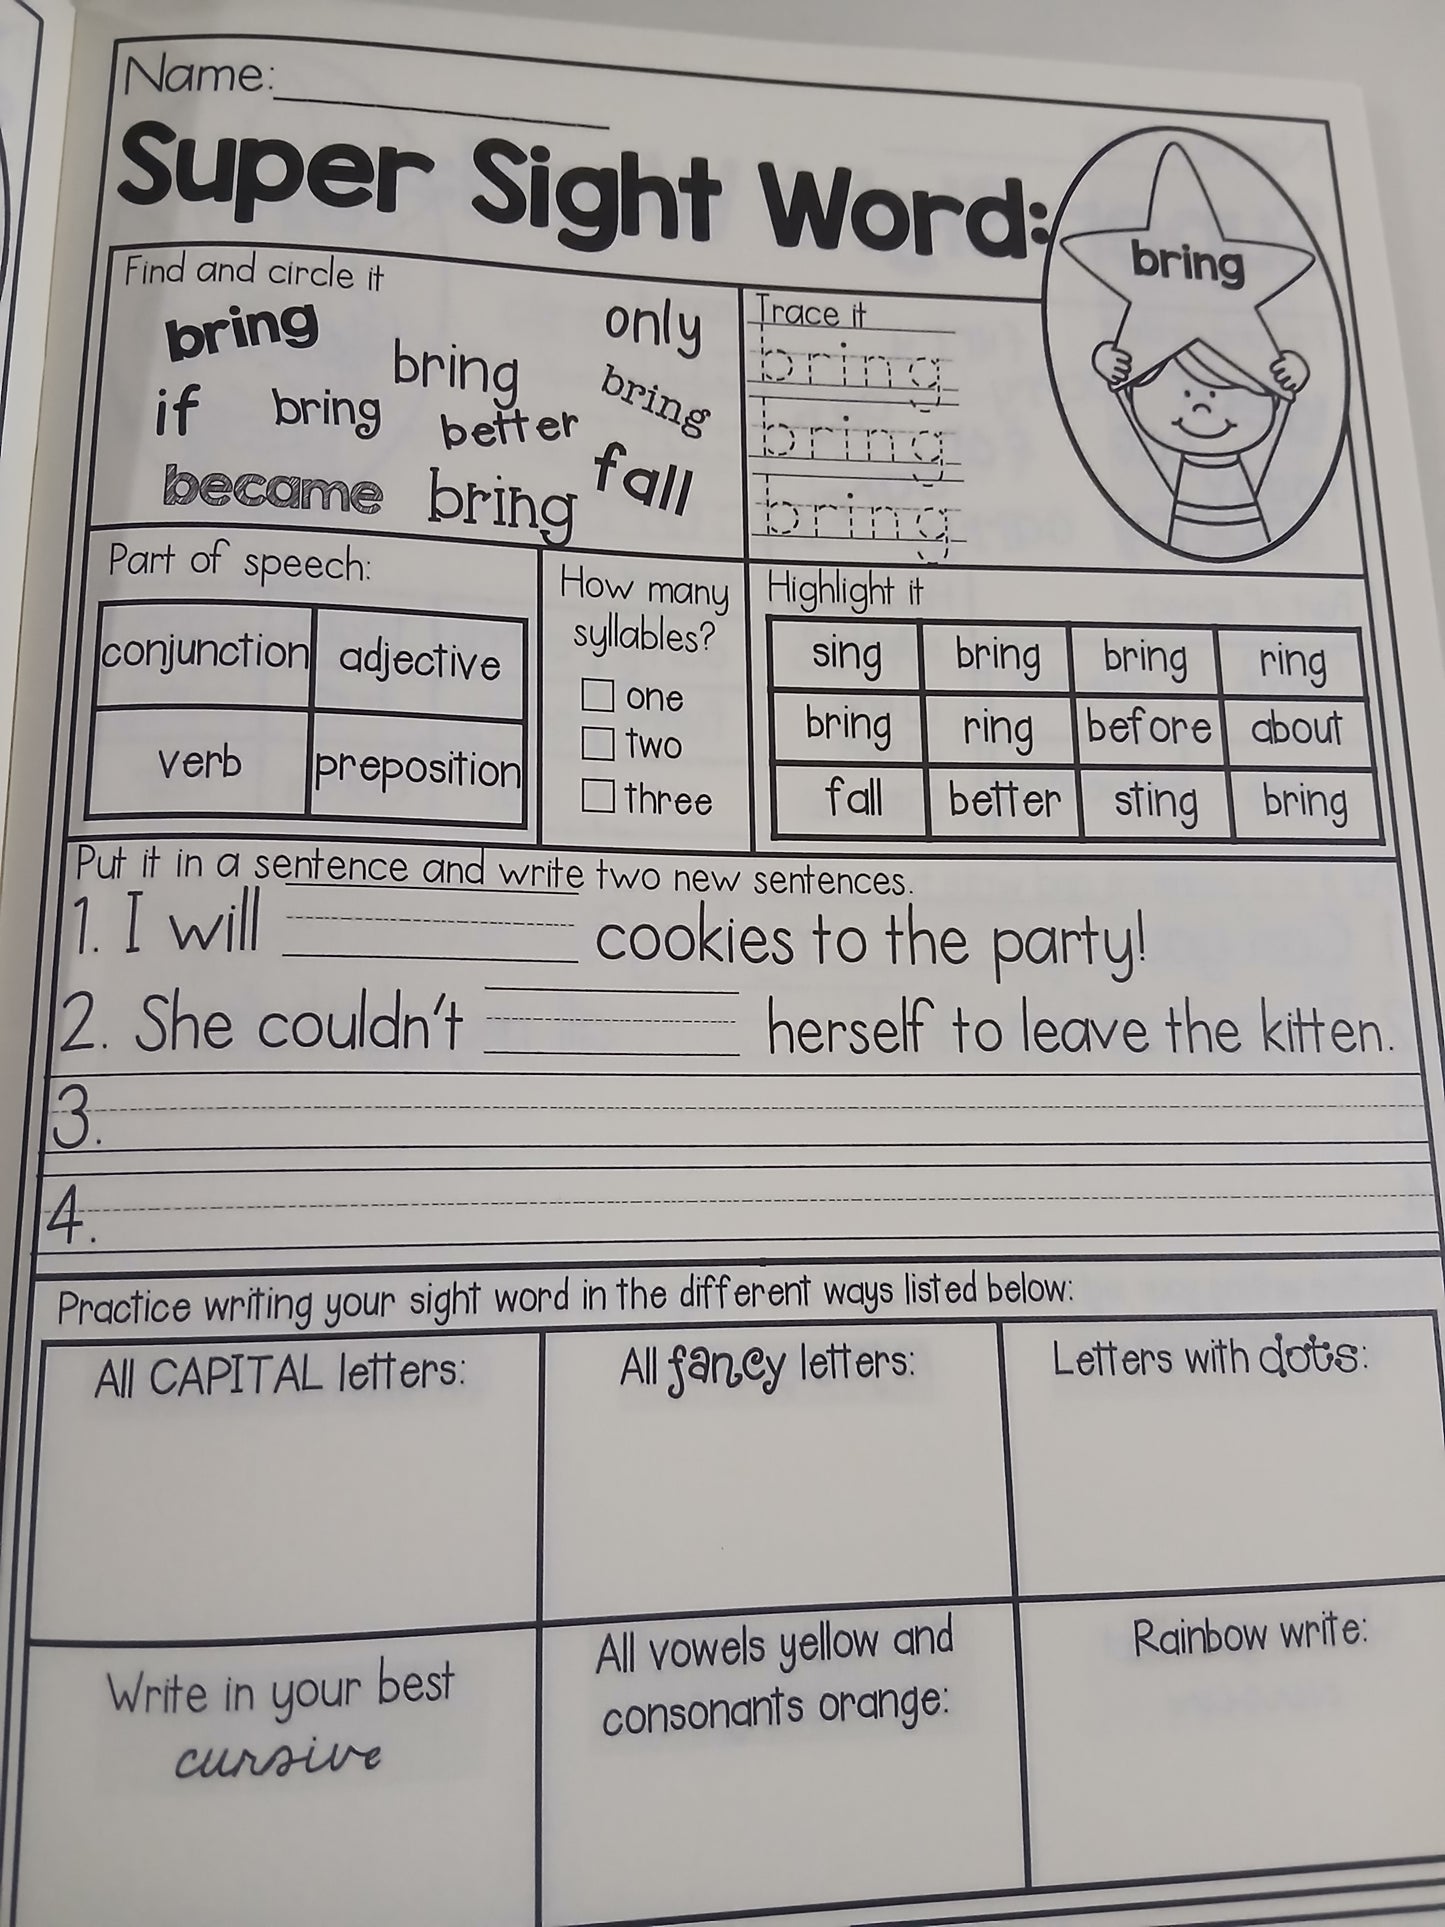 Name:
Super Sight Word:
bring
Find and circle it
bring
only
bring
bring
if
bring
better
became
bring
fall
Trace it
bring
bring
bring
Part of speech:
conjunction adjective
verb preposition
How many
syllables?
one
two
three
Highlight it
sing bring bring ring
bring ring before about
fall better sting bring
Put it in a sentence and write two new sentences.
1. I will cookies to the party!
2. She couldn't herself to leave the kitten.
3.
4.
Practice writing your sight word in the different ways listed below:
All CAPITAL letters:
All fancy letters:
Letters with dots:
Write in your best
cursive
All vowels yellow and
consonants orange:
Rainbow write: